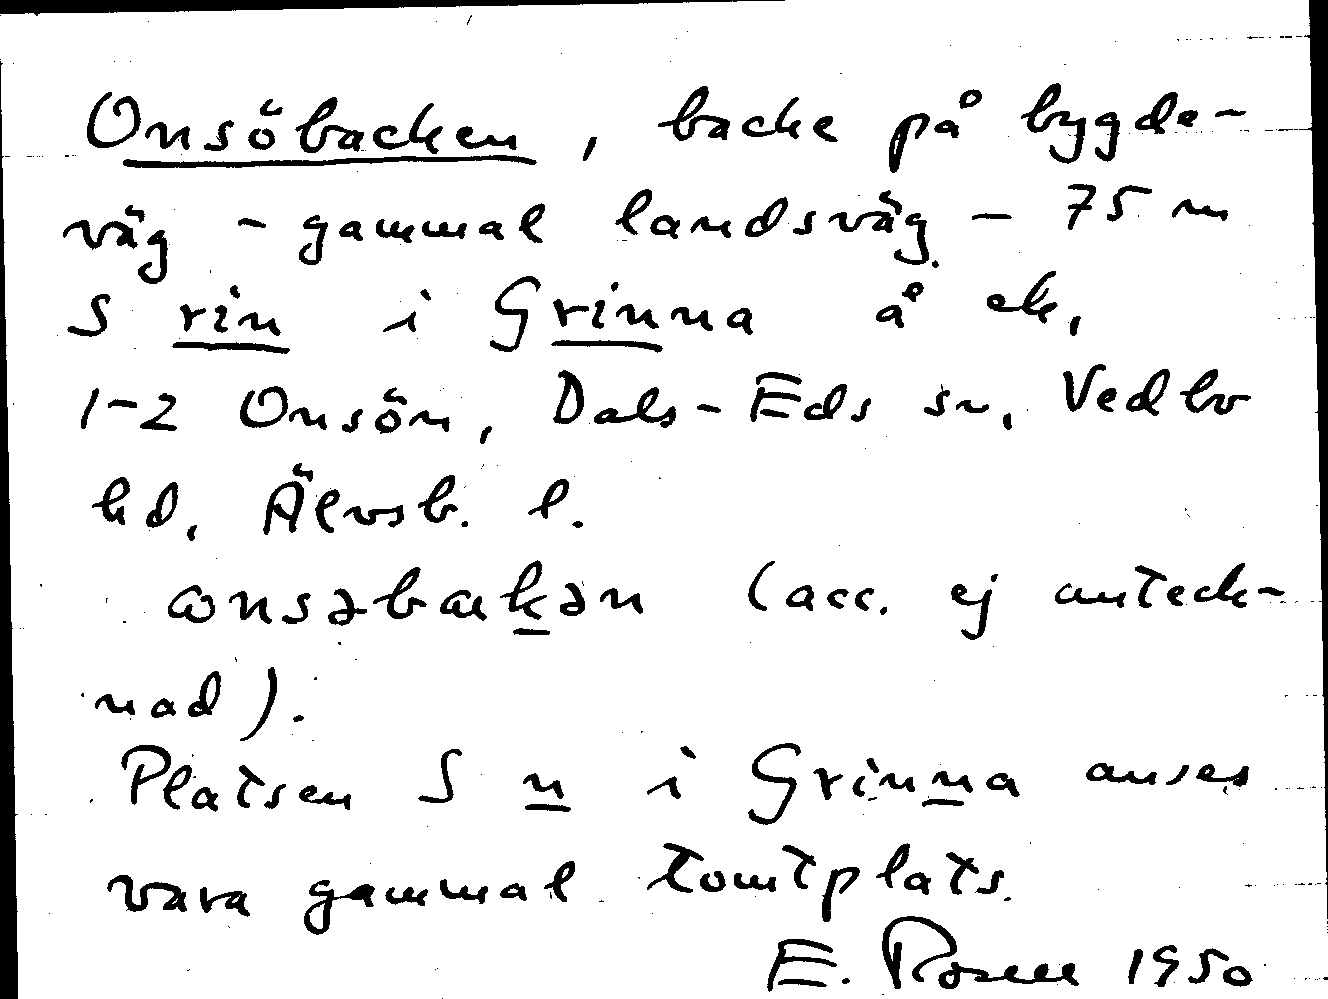 Onsöbacken, backe på bygde-
väg - gammal landsväg - 75 m
S rin i Grinna å ek,
1-2 Onsön, Dals-Eds sn, Vedbo
hd, Älvsb. l.
ωnsəbaҟən (acc. ej anteck-
nad).
Platsen S n i Grinna anses
vara gammal tomtplats.
E. Rosell 1950